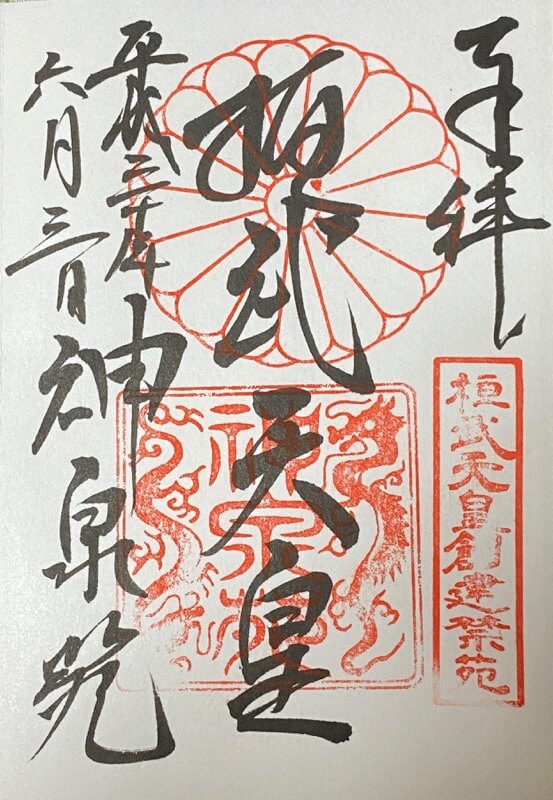 奉拝
桓武天皇創建禁苑
桓武天皇
神泉苑
平成三十年
六月三日
神泉苑